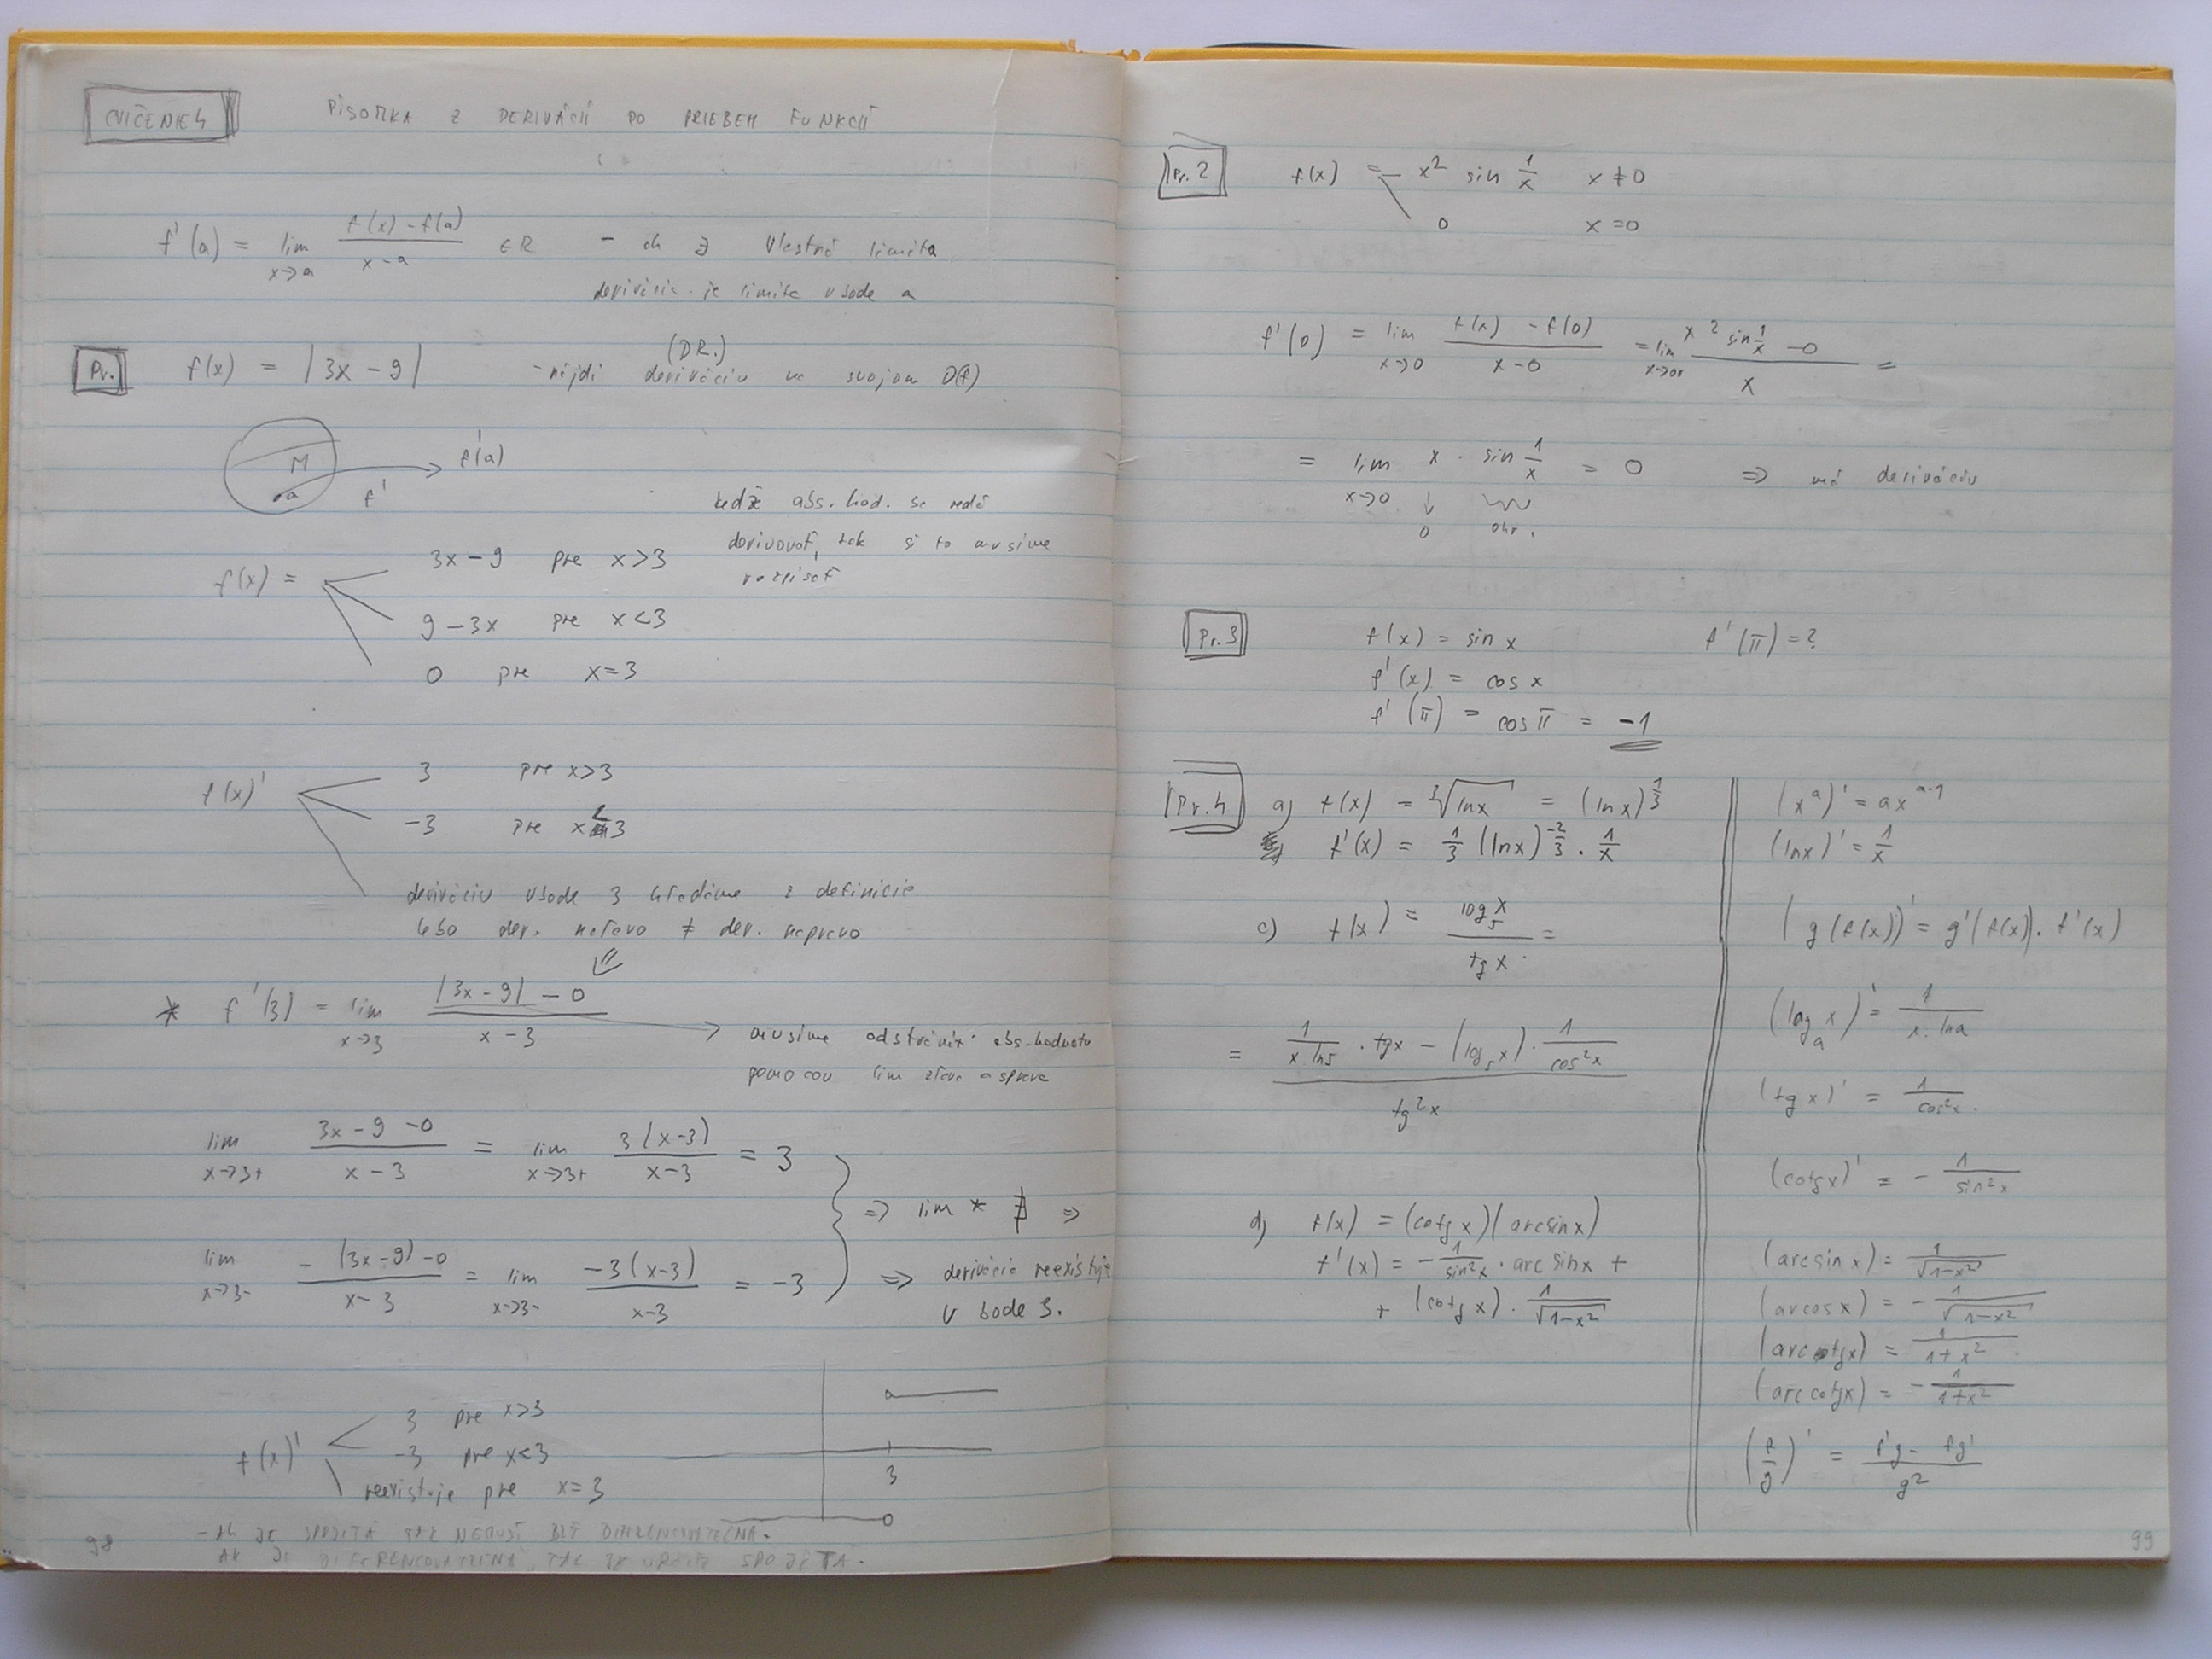 CVIČENIE 4
PÍSOMKA Z DERIVÁCIÍ PO PRIEBEH FUNKCIÍ
f'(a) = lim x→a (f(x) - f(a)) / (x - a) ∈ R - ak ∃ vlastná limita
derivácia je limita v bode a
Pr. f(x) = |3x - 9| - nájdi deriváciu na svojom D(f)
(DR.)
M a f' f'(a)
keďže abs. hod. sa nedá
derivovať, tak si to musíme
rozpísať
f(x) = 3x - 9 pre x > 3
9 - 3x pre x < 3
0 pre x = 3
f(x)' 3 pre x > 3
-3 pre x < 3
deriváciu v bode 3 hľadáme z definície
lebo der. naľavo ≠ der. napravo
* f'(3) = lim x→3 (|3x - 9| - 0) / (x - 3)
musíme odstrániť abs. hodnotu
pomocou lim zľava a sprava
lim x→3+ (3x - 9 - 0) / (x - 3) = lim x→3+ 3(x-3) / (x-3) = 3
⇒ lim * ∄ ⇒
lim x→3- (-(3x-9) - 0) / (x-3) = lim x→3- -3(x-3) / (x-3) = -3
⇒ derivácia neexistuje
v bode 3.
f(x)' 3 pre x > 3
-3 pre x < 3
neexistuje pre x = 3
3
- AK JE SPOJITÁ TAK NEMUSÍ BYŤ DIFERENCOVATEĽNÁ.
AK JE DIFERENCOVATEĽNÁ, TAK JE URČITE SPOJITÁ.
98
Pr. 2 f(x) = x² sin 1/x x ≠ 0
0 x = 0
f'(0) = lim x→0 (f(x) - f(0)) / (x - 0) = lim x→0 (x² sin 1/x - 0) / x =
= lim x→0 x · sin 1/x = 0 ⇒ má deriváciu
0 ohr.
Pr. 3 f(x) = sin x f'(π) = ?
f'(x) = cos x
f'(π) = cos π = -1
Pr. 4 a) f(x) = ³√(ln x) = (ln x)^(1/3)
f'(x) = 1/3 (ln x)^(-2/3) · 1/x
c) f(x) = log₅ x / tg x =
= (1/(x · ln 5) · tg x - (log₅ x) · 1/cos² x) / tg² x
d) f(x) = (cotg x)(arcsin x)
f'(x) = - 1/sin² x · arc sin x +
+ (cotg x) · 1/√(1-x²)
(x^a)' = a x^(a-1)
(ln x)' = 1/x
(g(f(x))' = g'(f(x)) · f'(x)
(log_a x)' = 1/(x · ln a)
(tg x)' = 1/cos² x
(cotg x)' = - 1/sin² x
(arcsin x) = 1/√(1-x²)
(arcos x) = - 1/√(1-x²)
(arc tg x) = 1/(1+x²)
(arc cotg x) = - 1/(1+x²)
(f/g)' = (f'g - fg') / g²
99